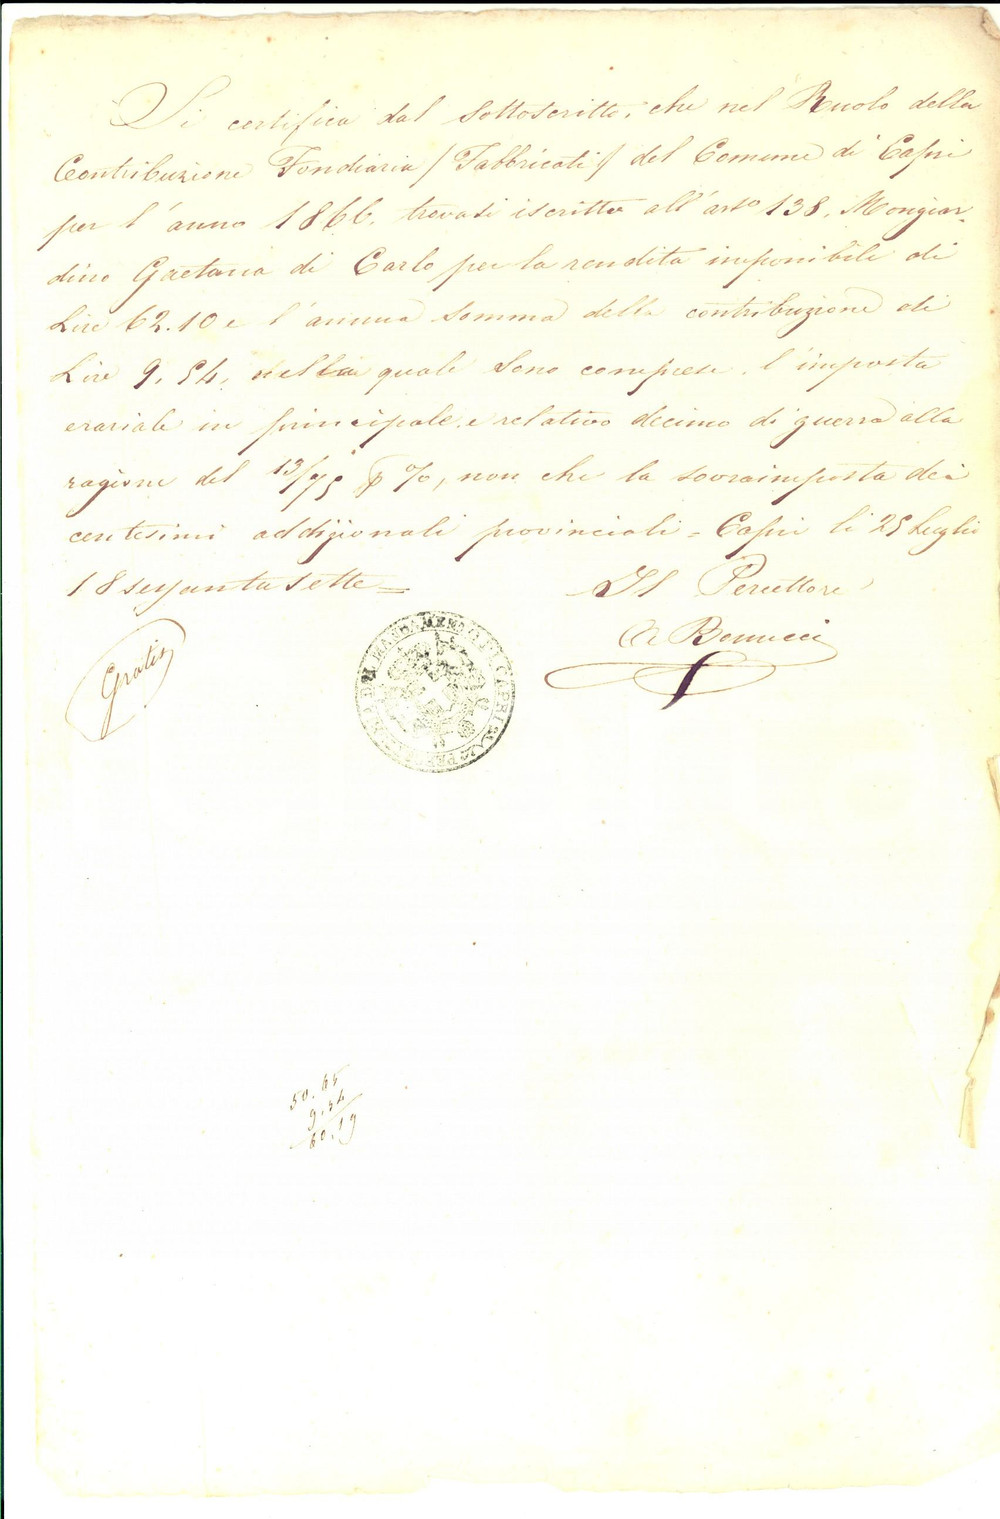 Si certifica dal sottoscritto, che nel Ruolo della
Contribuzione Fondiaria /Fabbricati/ del Comune di Capri
per l'anno 1866, trovasi iscritto all'arto 138, Mongiar-
dino Gaetana di Carlo per la rendita imponibile di
Lire 62.10 e l'annua somma della contribuzione di
Lire 9,54, nella quale sono comprese l'imposta
erariale in principale, e relativo decimo di guerra alla
ragione del 13/75 p %, non che la sovraimposta dei
centesimi addizionali provinciali = Capri li 25 Luglio
18sessantasette =
Il Percettore
Bonucci
Gratis
MANDAMENTO DI CAPRI
50.65
9,54
60,19